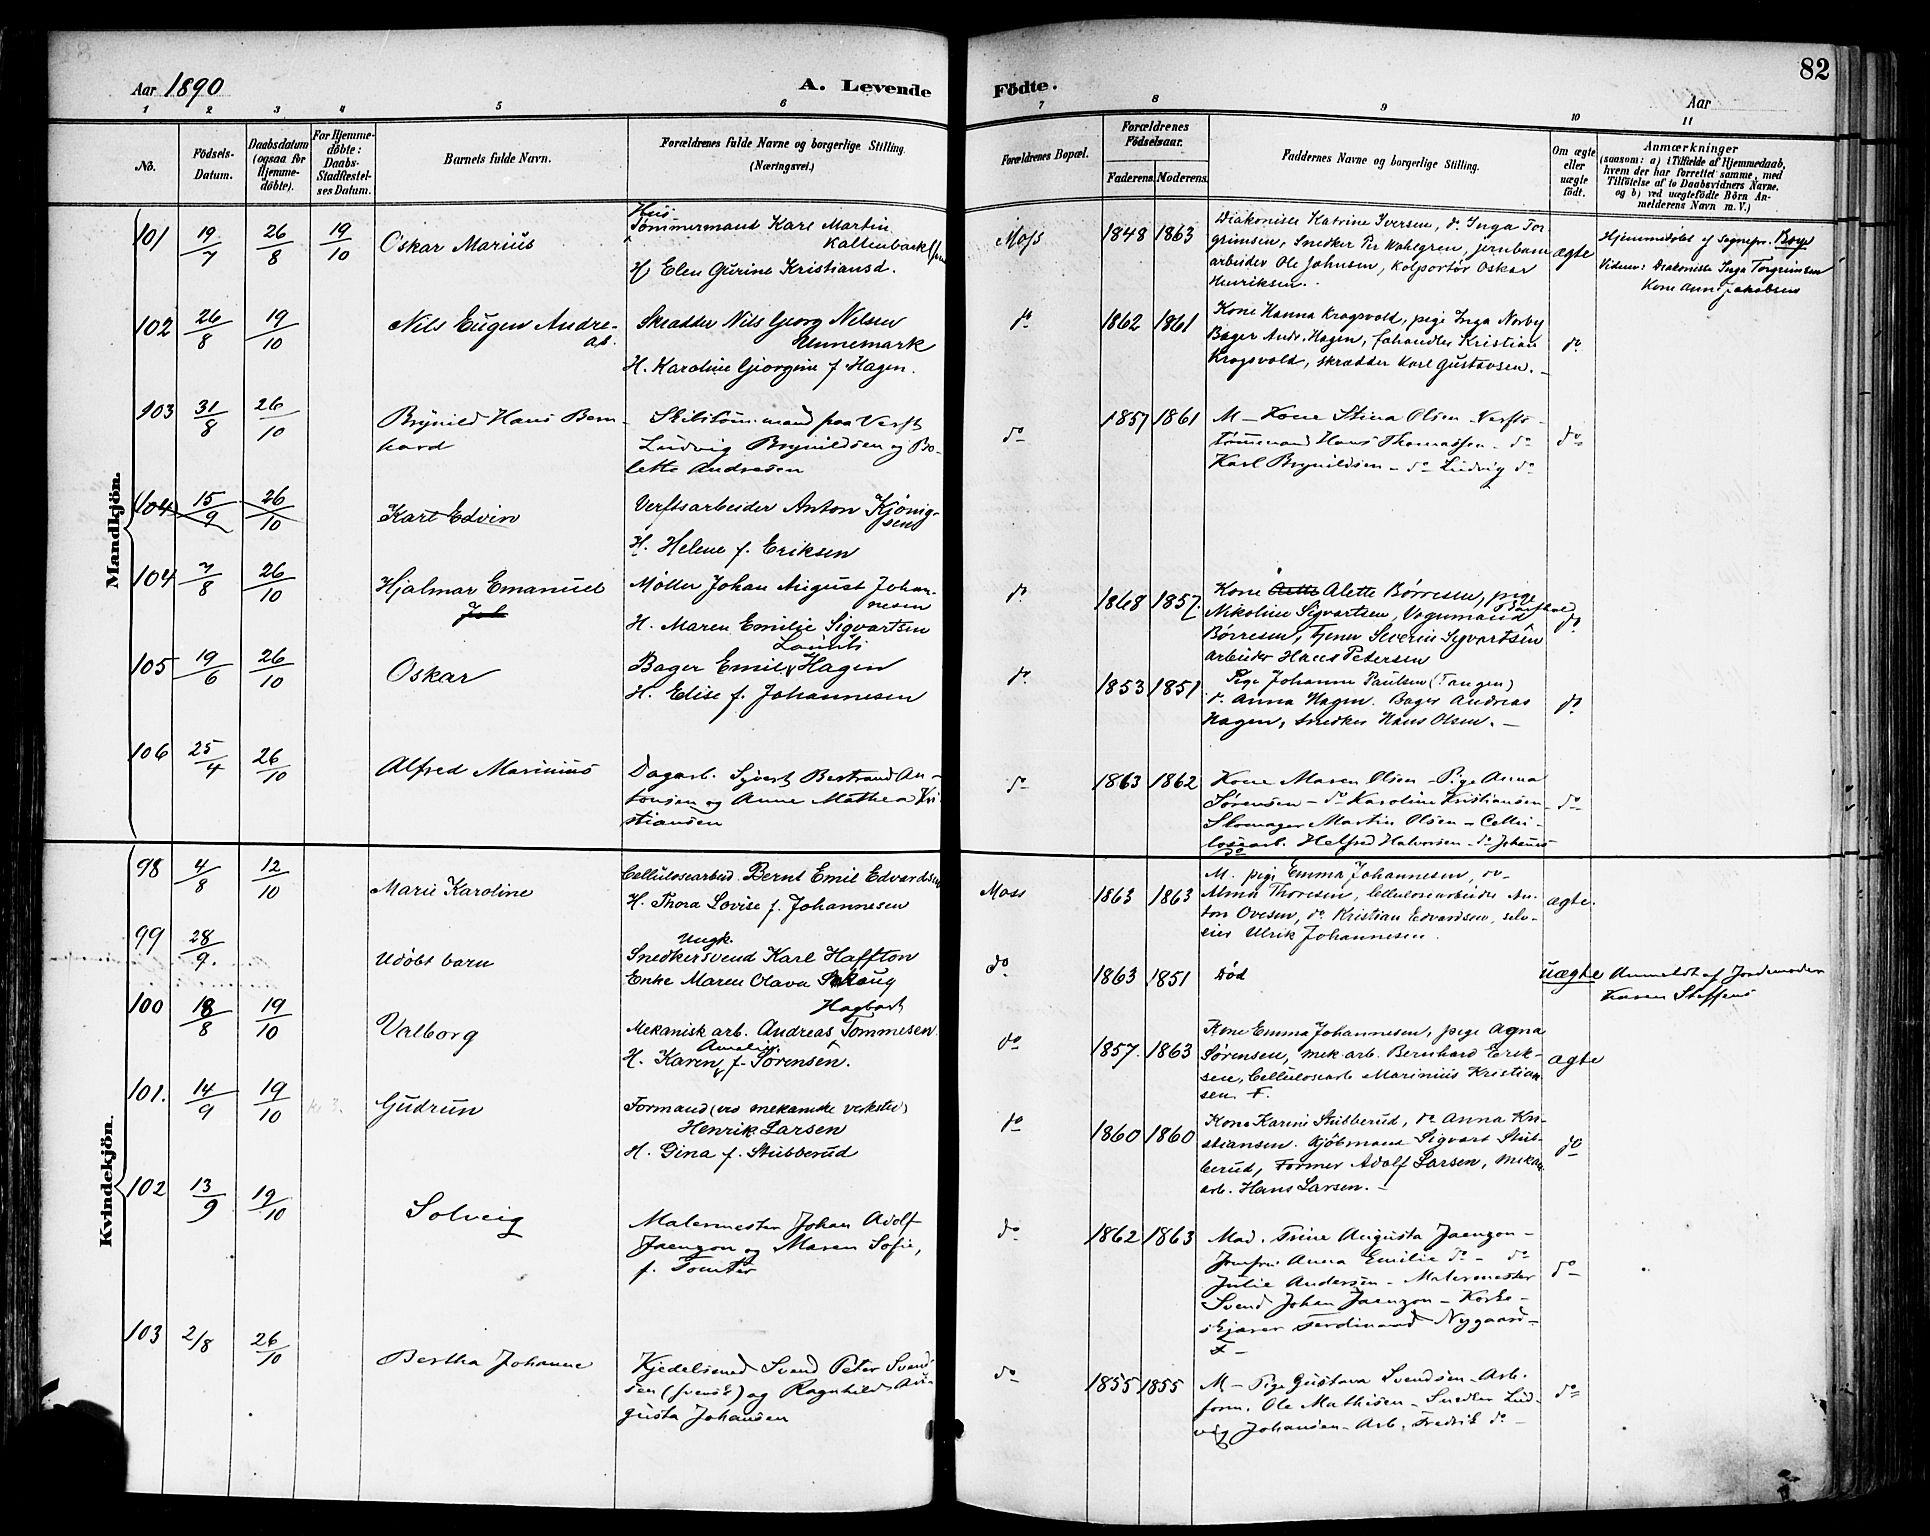 82
Aar 1890
A. Levende
Födte.
Aar
1 2 3 4 5 6 7 8 9 10 11
No.
Födsels-
Datum.
Daabsdatum
(ogsaa for
Hjemme-
döbte).
For Hjemme-
döbte:
Daabs-
Stadfæstel-
ses Datum.
Barnets fulde Navn.
Forældrenes fulde Navne og borgerlige Stilling.
(Næringsvei.)
Forældrenes Bopæl.
Forældrenes
Födselsaar.
Faderens. Moderens.
Faddernes Navne og borgerlige Stilling.
Om ægte
eller
uægte
födt.
Anmærkninger
(saasom: a) i Tilfælde af Hjemmedaab,
hvem der har forrettet samme, med
Tilföielse af to Daabsvidners Navne.
og b) ved uægtefödte Börn An-
melderens Navn m. V.)
Mandkjön.
101 19/7 26/8 19/10 Oskar Marius
Hus
Tømmermand Karl Martin
Kaltenback
H. Elen Gurine Kristiansd.
Moss 1848 1863
Diakonisse Katrine Iversen, do Inga Tor-
grimsen, Snedker Per Wahlgren, jernbane
arbeider Ole Johnsen, Kolportør Oskar
Henriksen.
ægte
Hjemmedøbt af Sognepr. Boye
Vidner: Diakonisse Inga Torgrimsen
Kone Anne Jakobsen
102 26/8 19/10 Nils Eugen Andre-
as.
Skrædder Nils Georg Nelsen
Unnemark
H. Karoline Georgine f. Hagen.
do 1862 1861
Kone Hanna Krogsvold, pige Inga Norby
Bager Andr. Hagen, Kristian
Krogsvold, skrædder Karl Gustavsen.
do
103 31/8 26/10 Brynild Hans Bern-
hard
Skibstømmermand paa Verft
Ludvig Brynildsen og Bo-
lette Andresen
do 1857 1861
M - Kone Stina Olsen - Verfts-
tømmermand Hans Thomassen - do
Karl Brynildsen - do Ludvig do
do
104 15/9 26/10 Karl Edvin
Verftsarbeider Anton Kjønig-
sen
H. Helene f. Eriksen
104 7/8 26/10 Hjalmar Emanuel
Joh
Møller Johan August Johan-
nesen
H. Maren Emilie Sigvartsen
do 1868 1857
Kone Alette Børresen, pige
Nikoline Sigvartsen, Vognmand
Børresen, tjener Severin Sigvartsen
arbeider Hans Petersen
do
105 19/6 26/10 Oskar
Lauritz
Bager Emil Hagen
H. Elise f. Johannesen
do 1853 1851
Pige Johanne Paulsen (Tangen)
do Anna Hagen. Bager Andreas
Hagen, snedker Hans Olsen. -
do
106 25/4 26/10 Alfred Marinius
Dagarb. Syvert Bertrand An-
tonsen og Anne Mathea Kri-
stiansen
do 1863 1862
Kone Maren Olsen - Pige Anna
Sørensen - do Karoline Kristiansen
Skomager Martin Olsen - Cellu-
losearb. Helfred Halvorsen - do Johannes
do
do
Kvindekjön.
98 4/8 12/10 Marie Karoline
Cellulosearbeid. Bernt Emil Edvardsen
H. Thora Lovise f. Johannesen
Moss 1863 1863
M. pige Emma Johannesen, do
Alma Thoresen, Cellulosearbeider An-
ton Ovesen, do Kristian Edvardsen, selv-
eier Ulrik Johannesen.
ægte.
99 28/9. Udøbt barn
Ungk.
Snedkersvend Karl Haffton
Enke Maren Olava Skaug
do 1863 1851 Død
uægte Anmeldt af Jordemoder
Karen Steffens
100 18/8 19/10 Valborg
Hagbart
Mekanisk arb. Andreas Tommesen
Amalie
H. Karen f. Sørensen.
do 1857. 1863
Kone Emma Johannesen, pige Agna
Sørensen, mek. arb. Bernhard Erik-
sen, Cellulosearb Marinius Kristian
sen. F.
ægte
101. 14/9 19/10 Gudrun
Formand (ved mekaniske verksted)
Henrik Larsen
H. Gina f. Stubberud
do 1860 1860
Kone Karine Stubberud, do Anna Kri-
stiansen. Kjøbmand Sigvart Stub-
berud, Former Adolf Larsen, mekan.
arb. Hans Larsen. -
do
102 13/9 19/10 Solveig
Malermester Johan Adolf
Jaenzon og Maren Sofie,
f. Tomter
do 1862 1863
Mad. Trine Augusta Jaenzon -
Jomfru Anna Emilie do - do
Julie Andersen - Malermester
Svend Johan Jaenzon - Korke-
skjærer Ferdinand Nygaard -
F -
do
103 2/8 26/10 Bertha Johanne
Kjedelsmed Svend Peter Svend-
sen (svensk) og Ragnhild Au-
gusta Johansen
do 1855 1855
M - Pige Gustava Svendsen - Arb.
form. Ole Mathisen - Snedker Lud-
vig Johansen - Arb. Fredrik do -
do